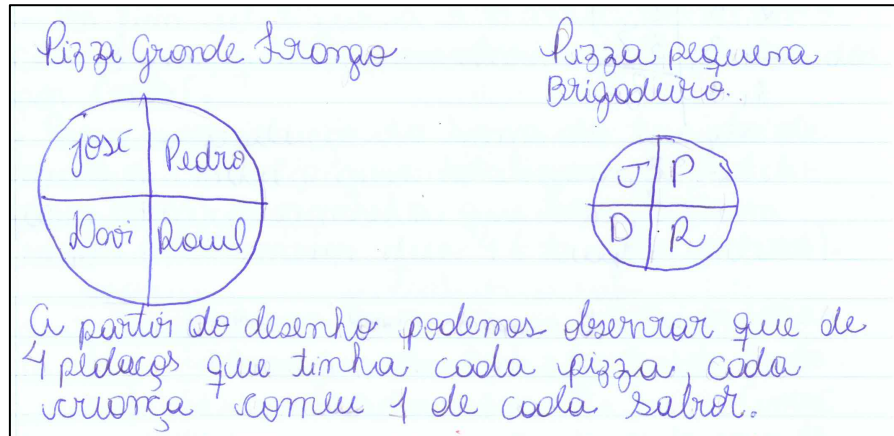 Pizza Grande Frango
Pizza pequena
Brigadeiro.
José Pedro
Davi Raul
J P
D R
A partir do desenho podemos observar que de
4 pedaços que tinha cada pizza, cada
criança comeu 1 de cada sabor.